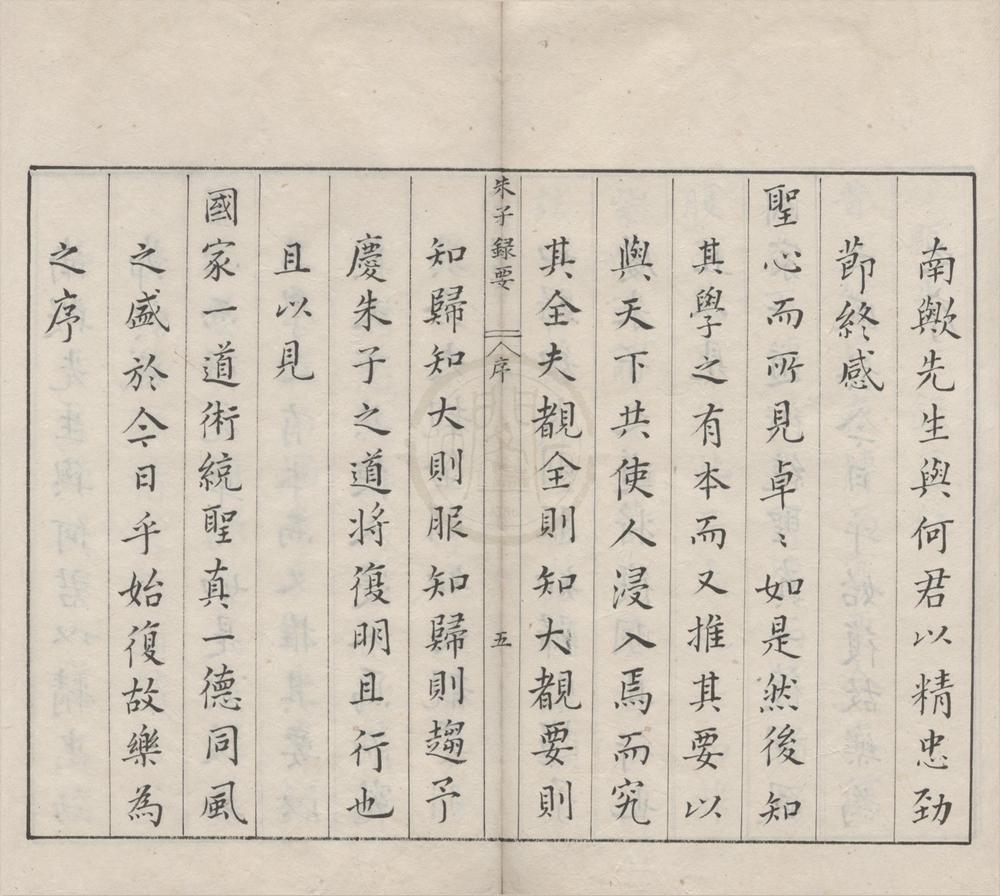 南歟先生與何君以精忠勁
節終感
聖心而所見卓〻如是然後知
其學之有本而又推其要以
與天下共使人浸入焉而究
其全夫覩全則知大覩要則
朱子錄要 序 五
知歸知大則服知歸則趨予
慶朱子之道將復明且行也
且以見
國家一道術統聖真一德同風
之盛於今日乎始復故樂為
之序